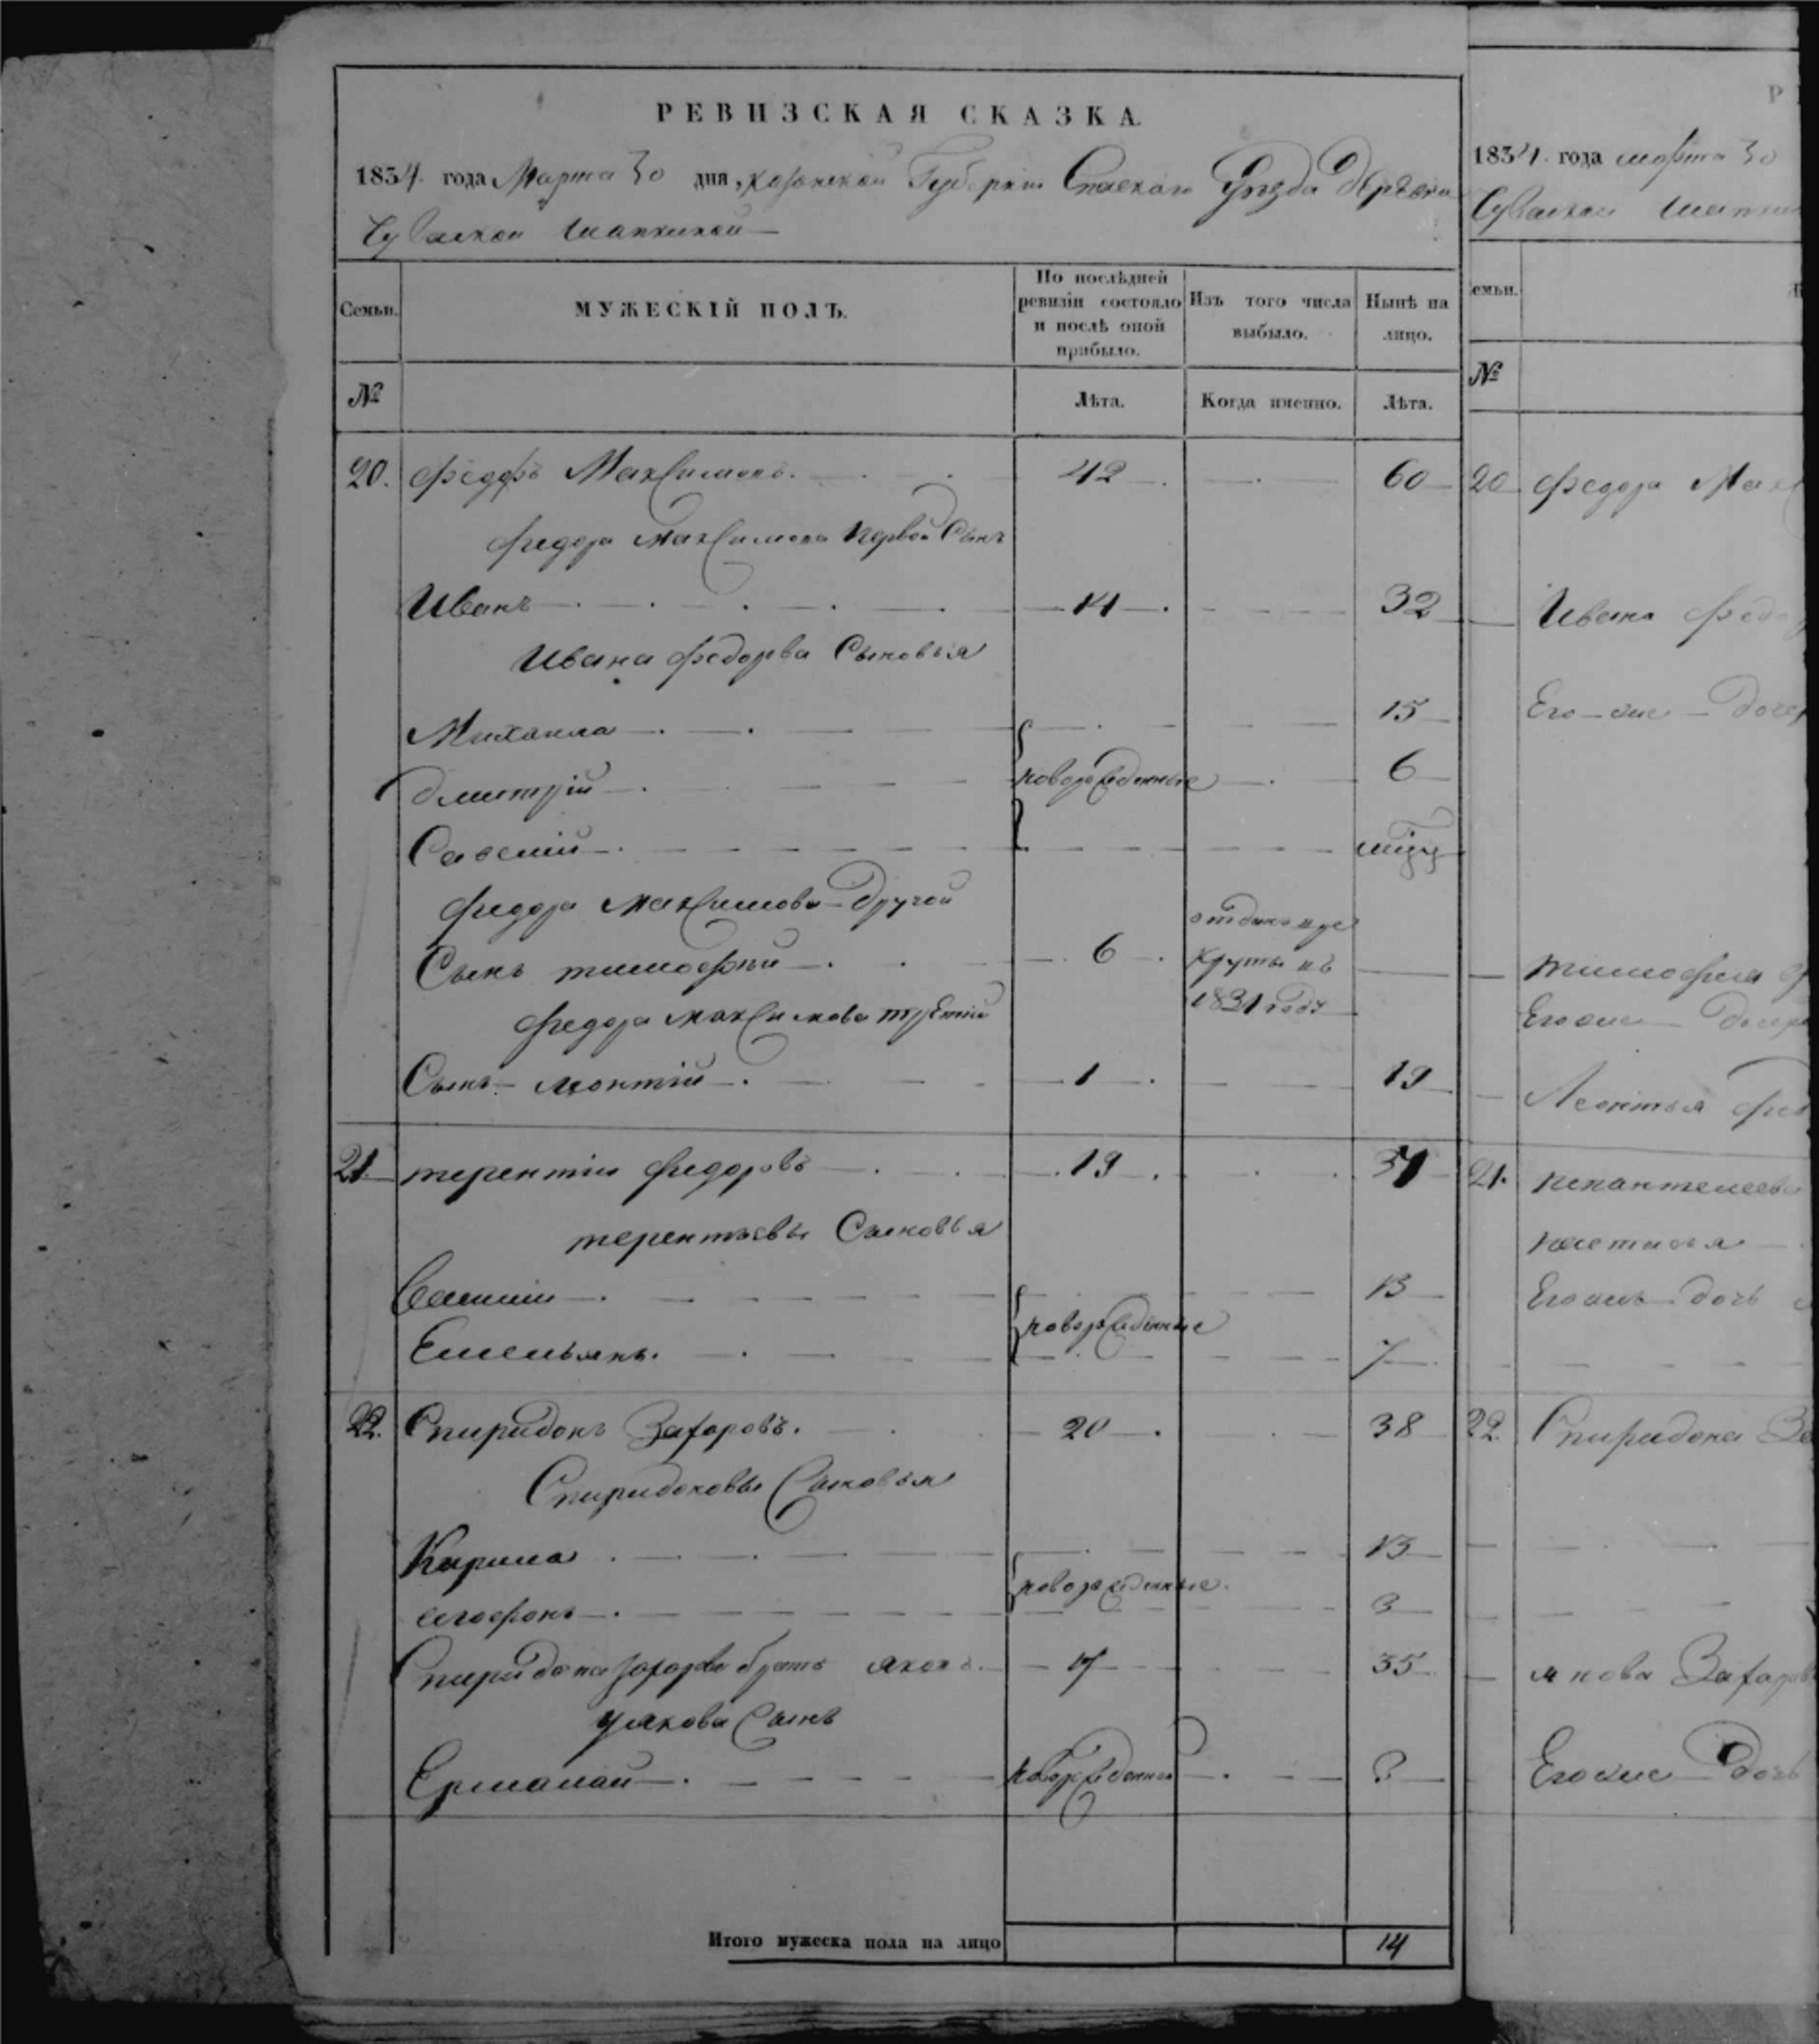 РЕВИЗСКАЯ СКАЗКА.
1834 года Марта 30 дня, казанской Губернии Спаскаго Уезда деревни
Чуваской Шапкиной
Семьи. МУЖЕСКІЙ ПОЛЪ. По послѣдней ревизіи состояло и послѣ оной прибыло. Изъ того числа выбыло. Нынѣ на лицо.
№ Лѣта. Когда именно. Лѣта.
20. Федоръ Максимовъ. 42 60
Федора Максимова первой Сынъ
Иванъ 14 32
Ивана Федорова Сыновья
Михаила 15
дмитрій новорожденные 6
Савелій
Федора Максимова другой
Сынъ тимофей 6 отданъ в рекруты въ 1831 году
Федора Максимова третій
Сынъ леонтій 1 19
21. терентіи федоровъ 19 37
терентьевы Сыновья
13
Емельянъ. новорожденные 7
22. Спиридонъ Захаровъ. 20 38
Спиридоновы Сыновья
Кирила 13
агафонъ новорожденные. 3
Спиридона захарова братъ яковъ. 17 35
у якова Сынъ
Ермалай новорожденной 3
Итого мужеска пола на лицо 14
1834 года марта 30
Чуваской Шапкин
емьи.
№
20 Федора Макс
Ивана Федо
Его же дочер
тимофея
Его же дочер
Леонтья фед
21.
настасья
Его же дочь
22. Спиридона За
якова Захаров
Его же дочь